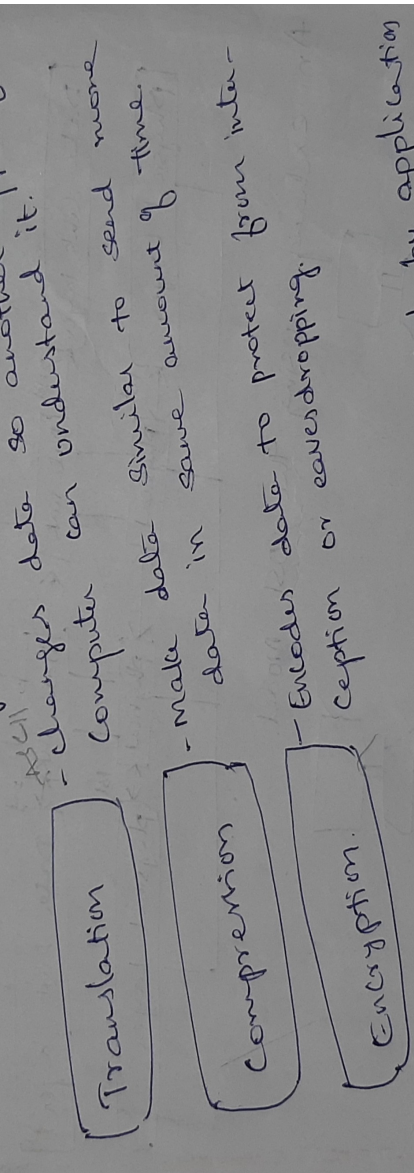 ASCII
Translation - changes data so another
computer can understand it.
Compression - Make data similar to send more
data in same amount of time.
Encryption. - Encodes data to protect from inter-
ception or eavesdropping.
by application